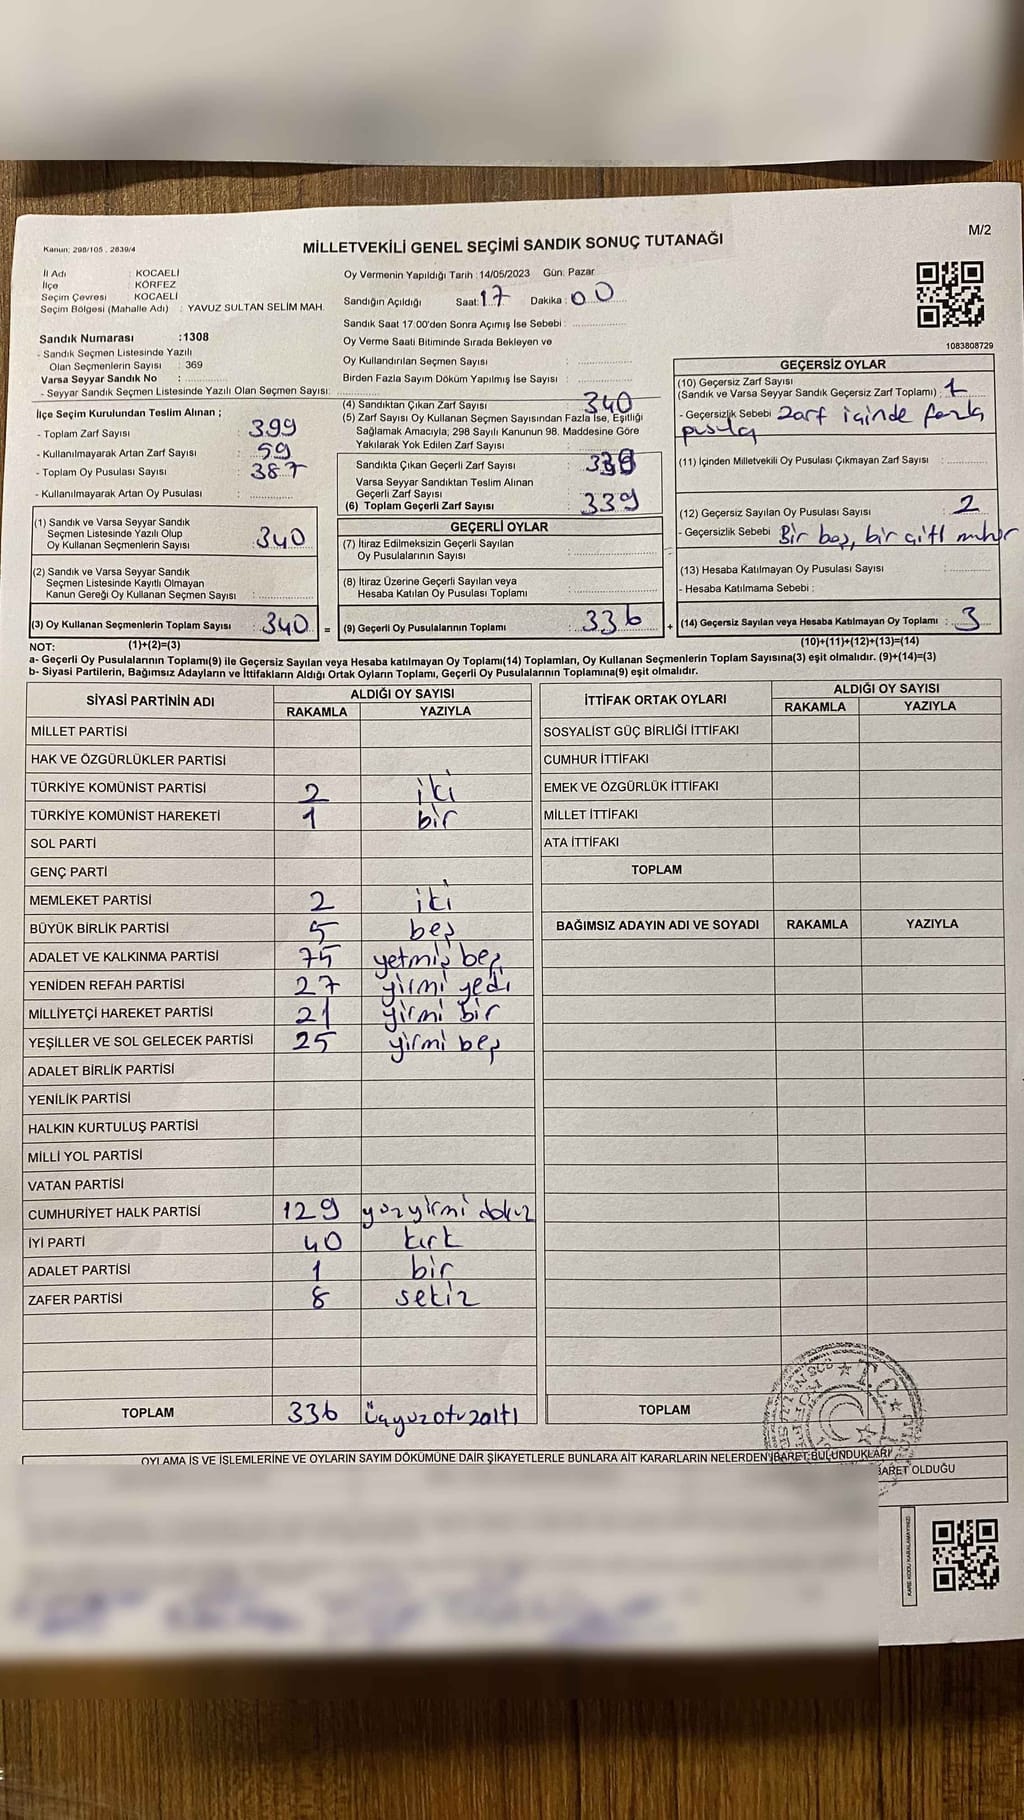 M/2
Kanun: 298/105 , 2839/4
MİLLETVEKİLİ GENEL SEÇİMİ SANDIK SONUÇ TUTANAĞI
İl Adı : KOCAELİ
İlçe : KÖRFEZ
Seçim Çevresi : KOCAELİ
Seçim Bölgesi (Mahalle Adı) : YAVUZ SULTAN SELİM MAH.
Sandık Numarası :1308
- Sandık Seçmen Listesinde Yazılı
Olan Seçmenlerin Sayısı : 369
Varsa Seyyar Sandık No :
- Seyyar Sandık Seçmen Listesinde Yazılı Olan Seçmen Sayısı:
Oy Vermenin Yapıldığı Tarih :14/05/2023 Gün: Pazar
Sandığın Açıldığı Saat:17 Dakika :00
Sandık Saat 17:00'den Sonra Açımış İse Sebebi :
Oy Verme Saati Bitiminde Sırada Bekleyen ve
Oy Kullandırılan Seçmen Sayısı :
Birden Fazla Sayım Döküm Yapılmış İse Sayısı :
1083808729
İlçe Seçim Kurulundan Teslim Alınan ;
- Toplam Zarf Sayısı : 399
- Kullanılmayarak Artan Zarf Sayısı : 59
- Toplam Oy Pusulası Sayısı : 387
- Kullanılmayarak Artan Oy Pusulası :
(1) Sandık ve Varsa Seyyar Sandık
Seçmen Listesinde Yazılı Olup
Oy Kullanan Seçmenlerin Sayısı : 340
(2) Sandık ve Varsa Seyyar Sandık
Seçmen Listesinde Kayıtlı Olmayan
Kanun Gereği Oy Kullanan Seçmen Sayısı :
(3) Oy Kullanan Seçmenlerin Toplam Sayısı : 340 =
(4) Sandıktan Çıkan Zarf Sayısı : 340
(5) Zarf Sayısı Oy Kullanan Seçmen Sayısından Fazla İse, Eşitliği
Sağlamak Amacıyla; 298 Sayılı Kanunun 98. Maddesine Göre
Yakılarak Yok Edilen Zarf Sayısı :
Sandıkta Çıkan Geçerli Zarf Sayısı :
Varsa Seyyar Sandıktan Teslim Alınan
Geçerli Zarf Sayısı :
(6) Toplam Geçerli Zarf Sayısı : 339
GEÇERLİ OYLAR
(7) İtiraz Edilmeksizin Geçerli Sayılan
Oy Pusulalarının Sayısı :
(8) İtiraz Üzerine Geçerli Sayılan veya
Hesaba Katılan Oy Pusulası Toplamı :
(9) Geçerli Oy Pusulalarının Toplamı : 336 +
GEÇERSİZ OYLAR
(10) Geçersiz Zarf Sayısı
(Sandık ve Varsa Seyyar Sandık Geçersiz Zarf Toplamı) : 1
- Geçersizlik Sebebi : Zarf içinde fazla
pusula
(11) İçinden Milletvekili Oy Pusulası Çıkmayan Zarf Sayısı :
(12) Geçersiz Sayılan Oy Pusulası Sayısı : 2
- Geçersizlik Sebebi : Bir boş, bir çift mühür
(13) Hesaba Katılmayan Oy Pusulası Sayısı :
- Hesaba Katılmama Sebebi :
(14) Geçersiz Sayılan veya Hesaba Katılmayan Oy Toplamı : 3
NOT: (1)+(2)=(3)
(10)+(11)+(12)+(13)=(14)
a- Geçerli Oy Pusulalarının Toplamı(9) ile Geçersiz Sayılan veya Hesaba katılmayan Oy Toplamı(14) Toplamları, Oy Kullanan Seçmenlerin Toplam Sayısına(3) eşit olmalıdır. (9)+(14)=(3)
b- Siyasi Partilerin, Bağımsız Adayların ve İttifakların Aldığı Ortak Oyların Toplamı, Geçerli Oy Pusulalarının Toplamına(9) eşit olmalıdır.
SİYASİ PARTİNİN ADI ALDIĞI OY SAYISI
RAKAMLA YAZIYLA
MİLLET PARTİSİ
HAK VE ÖZGÜRLÜKLER PARTİSİ
TÜRKİYE KOMÜNİST PARTİSİ 2 iki
TÜRKİYE KOMÜNİST HAREKETİ 1 bir
SOL PARTİ
GENÇ PARTİ
MEMLEKET PARTİSİ 2 iki
BÜYÜK BİRLİK PARTİSİ 5 beş
ADALET VE KALKINMA PARTİSİ 75 yetmiş beş
YENİDEN REFAH PARTİSİ 27 yirmi yedi
MİLLİYETÇİ HAREKET PARTİSİ 21 yirmi bir
YEŞİLLER VE SOL GELECEK PARTİSİ 25 yirmi beş
ADALET BİRLİK PARTİSİ
YENİLİK PARTİSİ
HALKIN KURTULUŞ PARTİSİ
MİLLİ YOL PARTİSİ
VATAN PARTİSİ
CUMHURİYET HALK PARTİSİ 129 yüzyirmi dokuz
İYİ PARTİ 40 kırk
ADALET PARTİSİ 1 bir
ZAFER PARTİSİ 8 sekiz
TOPLAM 336 üçyüzotuzaltı
İTTİFAK ORTAK OYLARI ALDIĞI OY SAYISI
RAKAMLA YAZIYLA
SOSYALİST GÜÇ BİRLİĞİ İTTİFAKI
CUMHUR İTTİFAKI
EMEK VE ÖZGÜRLÜK İTTİFAKI
MİLLET İTTİFAKI
ATA İTTİFAKI
TOPLAM
BAĞIMSIZ ADAYIN ADI VE SOYADI RAKAMLA YAZIYLA
TOPLAM
T.C.
OYLAMA İŞ VE İŞLEMLERİNE VE OYLARIN SAYIM DÖKÜMÜNE DAİR ŞİKAYETLERLE BUNLARA AİT KARARLARIN NELERDEN İBARET BULUNDUKLARI
BARET OLDUĞU
KARE KODU KARALAMAYINIZ!